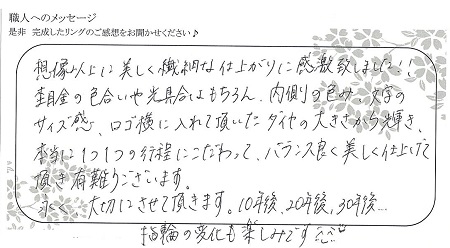 職人へのメッセージ
是非 完成したリングのご感想をお聞かせください♪
想像以上に美しく繊細な仕上がりに感激致しました!!
杢目金の色合いや光具合はもちろん、内側の色み、文字の
サイズ感、ロゴ横に入れて頂いたダイヤの大きさから輝き、
本当に1つ1つの行程にこだわって、バランス良く美しく仕上げて
頂き有難うございます。
永く、大切にさせて頂きます。10年後、20年後、30年後...
指輪の変化も楽しみです